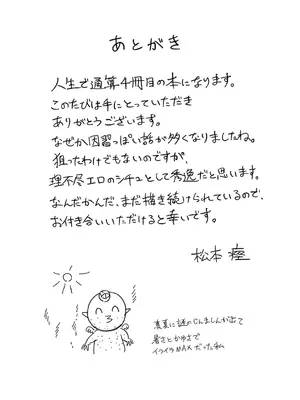 あとがき
人生で通算4冊目の本になります。
このたびは手にとっていただき
ありがとうございます。
なぜか因習っぽい話が多くなりましたね。
狙ったわけでもないのですが、
理不尽エロのシチュとして秀逸だと思います。
なんだかんだ、まだ描き続けられているので、
お付き合いいただけると幸いです。
松本 痙
真夏に謎のじんましんが出て
暑さとかゆさで
イライラMAXだった私